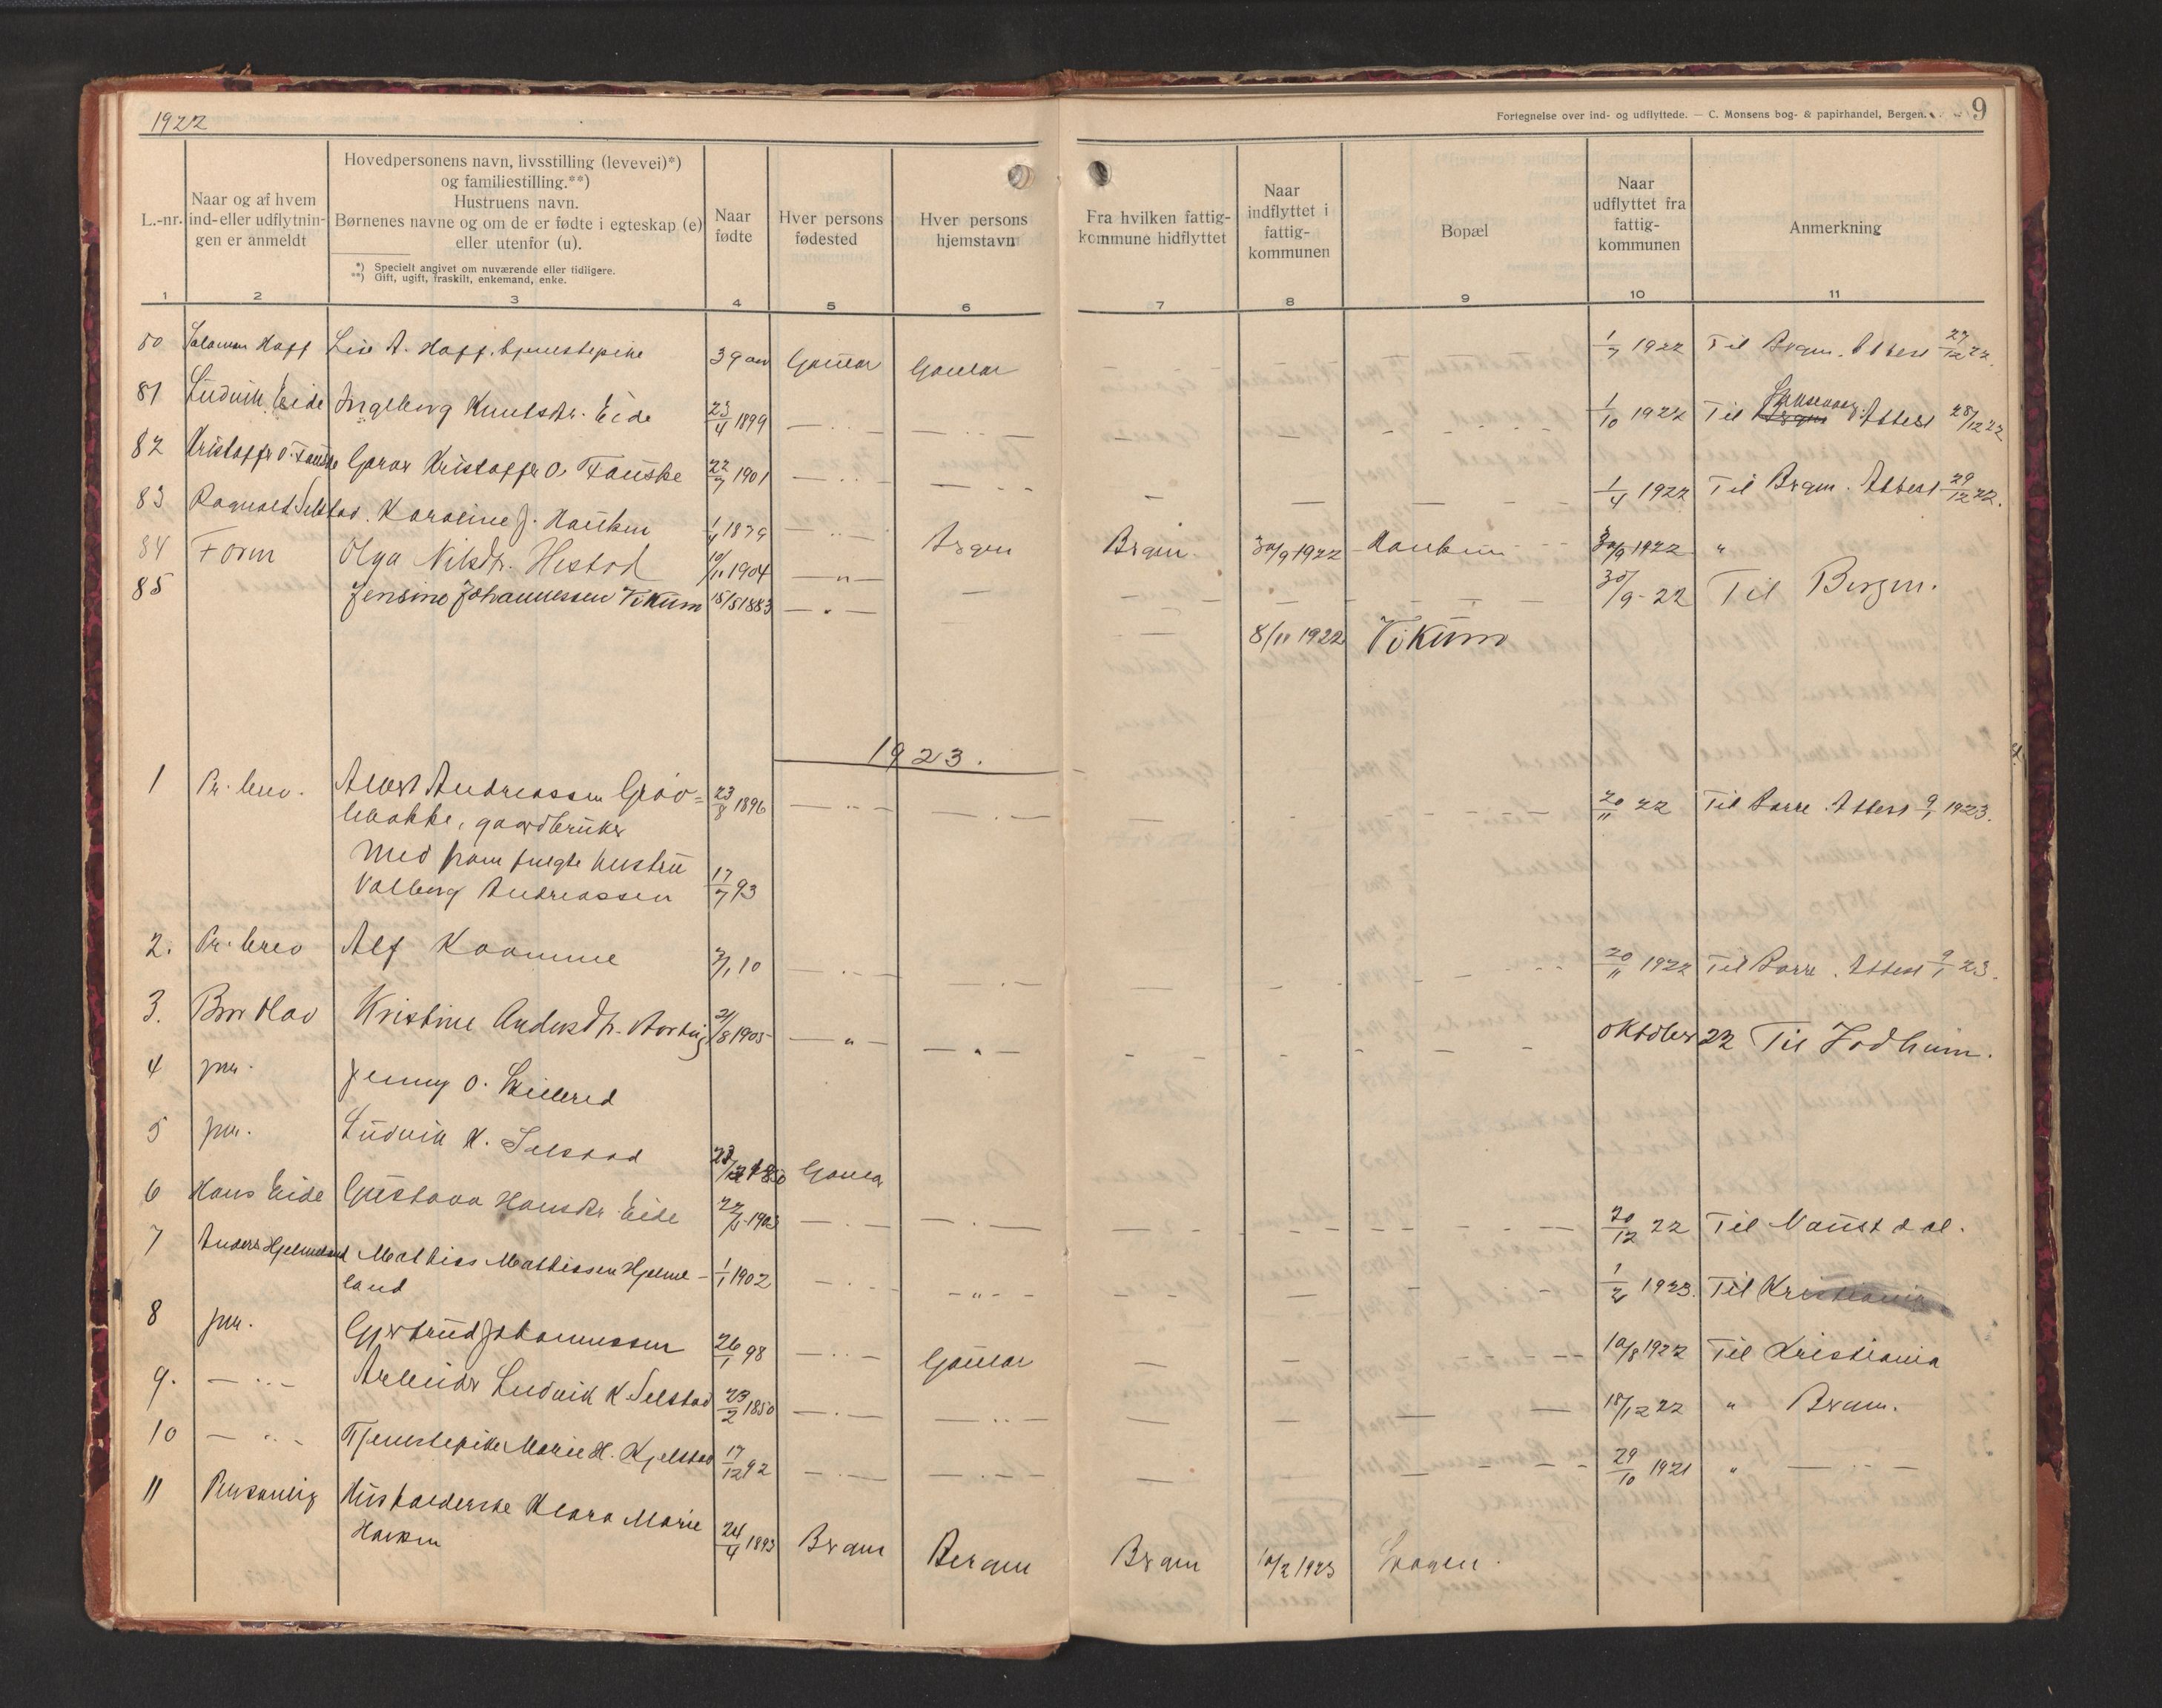 1922
Fortegnelse over ind- og udflyttede. — C. Monsens bog- & papirhandel, Bergen.
9
L.-nr.
Naar og af hvem
ind- eller udflytnin-
gen er anmeldt
Hovedpersonens navn, livsstilling (levevei)*)
og familiestilling.**)
Hustruens navn.
Børnenes navne og om de er fødte i egteskap (e)
eller utenfor (u).
*) Specielt angivet om nuværende eller tidligere.
**) Gift, ugift, fraskilt, enkemand, enke.
Naar
fødte
Hver persons
fødested
Hver persons
hjemstavn
Fra hvilken fattig-
kommune hidflyttet
Naar
indflyttet i
fattig-
kommunen
Bopæl
Naar
udflyttet fra
fattig-
kommunen
Anmerkning
1 2 3 4 5 6 7 8 9 10 11
80 Salamon Haff Lise A. Haff, tjenestepike 39 aar Gaular Gaular 1/7 1922 Til Brgn. Attest 27/12 22.
81 Ludvik Eide Ingeborg Knutsdtr. Eide 23/4 1899 — ·· — — ·· — 1/10 1922 Til Attest 28/12 22
82 Kristoffer O. Fauske Kristoffer O. Fauske 22/7 1901 — ·· — — ·· — 1/4 1922 Til Brgn. Attest 29/12 22.
83 Ragnvald Selstad. Karoline J. Hauken 1/4 1879 — ·· — Brgen Brgen. 30/9 1922 Haukum 30/9 1922 "
84 Form Olga Nilsdtr. Hestad 10/11 1904 — " — — 30/9-22 Til Bergen.
85 Jensine Johannessen Vikum 15/5 1883 — " — 8/11 1922 Vikum
1923.
1 Pr. brev. Albert Andreassen Grov=
bakke, gaardbruker 23/8 1896 — ·· — — ·· — 20/11 22 Til Borre. Attest 9/1 1923.
Med hustru
Valborg Andreassen 17/7 93
2. Pr. brev Alf Kaamme 2/1 10 — ·· — — ·· — 20/11 1922 Til Borre. Attest 9/1 23.
3. Bror Olav Kristine Andersdtr. 21/8 1905 — " — — " — Oktober 22 Til Jødheim.
4 pr. Jenny O. Skilbred
5 pr. Ludvik K. Selstad 1850 Gaular
6 Hans Eide Gustava Hansdtr. Eide 22/5-1903 — ·· — — ·· — 20/12 22 Til Naustdal.
7 Anders Hjelmeland Mathias Mathiassen Hjelme-
land 1/1 1902 — ·· — — " — 1/2 1923. Til Kristiania
8 pr. Gjertrud Johannessen 26/1 98 — ·· — Gaular 10/8 1922 Til Kristiania
9. — ·· — Arbeider Ludvik K. Selstad 23/2 1850 — ·· — ·· — 18/12 22 " Brgen.
10 — ·· — Tjenestepike Marie H. Kjelstad 17/12 92 — ·· — — ·· — 29/10 1921 " — ·· —
11 Personlig Husholderske Klara Marie
Hansen 24/4 1893 Brgen Bergen Brgen 10/2 1923